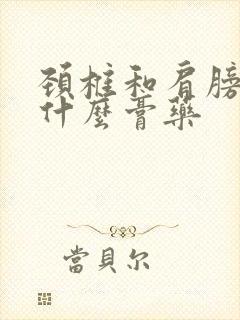 頚椎和肩膀
什麼膏藥
當貝尔